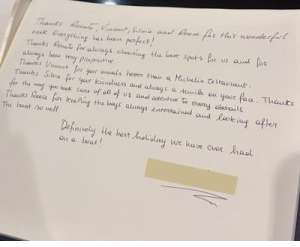 Thanks Renato, Vincent, Silvia and Reene for this wonderful
week. Everything has been perfect!
Thanks Renato for always choosing the best spots for us and for
always being very
Thanks Vincent for your meals better than a Michelin Restaurant.
Thanks Silvia for your kindness and always a smile on your face. Thanks
for the way you took care of all of us and attentive to every details
Thanks Reene for keeping the boys always entertained and looking after
the boat so well
Definively the best holiday we have ever had
on a boat!